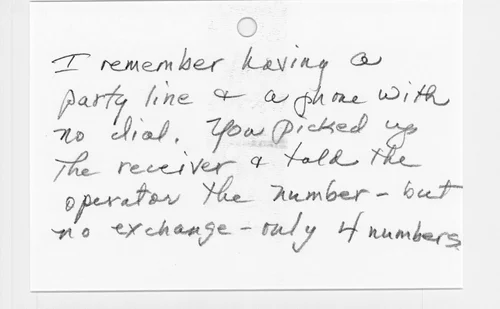 I remember having a
party line & a phone with
no dial. You picked up
the receiver & told the
operator the number - but
no exchange - only 4 numbers